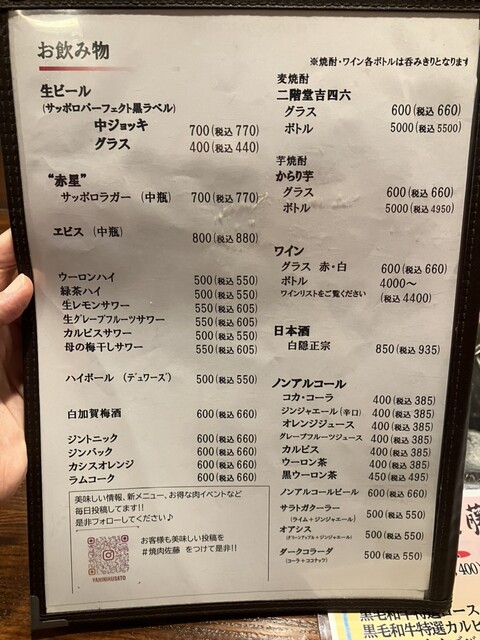 お飲み物
※焼酎・ワイン各ボトルは呑みきりとなります
生ビール
(サッポロパーフェクト黒ラベル)
中ジョッキ 700(税込 770)
グラス 400(税込 440)
"赤星"
サッポロラガー (中瓶) 700(税込 770)
ヱビス (中瓶) 800(税込 880)
ウーロンハイ 500(税込 550)
緑茶ハイ 500(税込 550)
生レモンサワー 550(税込 605)
生グレープフルーツサワー 550(税込 605)
カルピスサワー 500(税込 550)
母の梅干しサワー 550(税込 605)
ハイボール (デュワーズ) 500(税込 550)
白加賀梅酒 600(税込 660)
ジントニック 600(税込 660)
ジンバック 600(税込 660)
カシスオレンジ 600(税込 660)
ラムコーク 600(税込 660)
美味しい情報、新メニュー、お得な肉イベントなど
毎日投稿してます!!
是非フォローしてください♪
お客様も美味しい投稿を
#焼肉佐藤 をつけて是非!!
YAKINIKUSATO
麦焼酎
二階堂吉四六
グラス 600(税込 660)
ボトル 5000(税込 5500)
芋焼酎
からり芋
グラス 600(税込 660)
ボトル 5000(税込 4950)
ワイン
グラス 赤・白 600(税込 660)
ボトル 4000〜
ワインリストをご覧ください (税込 4400)
日本酒
白隠正宗 850(税込 935)
ノンアルコール
コカ・コーラ 400(税込 385)
ジンジャエール(辛口) 400(税込 385)
オレンジジュース 400(税込 385)
グレープフルーツジュース 400(税込 385)
カルピス 400(税込 385)
ウーロン茶 400(税込 385)
黒ウーロン茶 450(税込 495)
ノンアルコールビール 600(税込 660)
サラトガクーラー 500(税込 550)
(ライム+ジンジャエール)
オアシス 500(税込 550)
(グリーンアップル+ジンジャエール)
ダークコラーダ 500(税込 550)
(コーラ+ココナッツ)
黒毛和牛特選カルビ